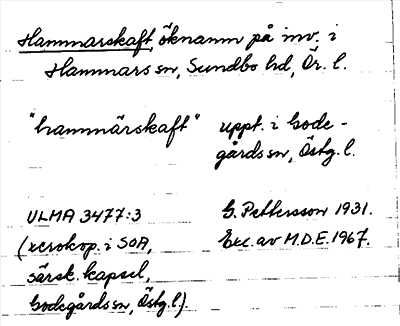 Hammarskaft, öknamn på inv. i
Hammars sn, Sundbo hd, Ör. l.
"hammärskaft" uppt. i Gode-
gårds sn, Östg. l.
ULMA 3477:3 G. Pettersson 1931.
(xerokop. i SOA, Exc. av M.D.E. 1967.
särsk. kapsel,
Godegårds sn, Östg. l.).